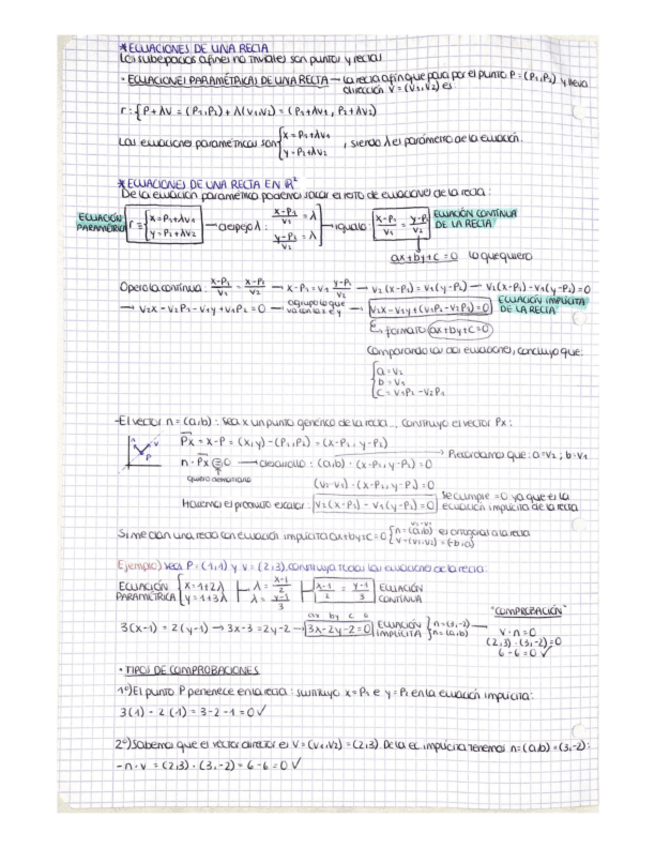 *ECUACIONES DE UNA RECTA
Los subespacios afines no triviales son puntos y rectas
· ECUACIONES PARAMÉTRICAS DE UNA RECTA — La recta afín que pasa por el punto P = (P1,P2) y lleva
dirección V = (V1,V2) es:
r: {P+λV = (P1,P2) + λ(V1,V2) = (P1+λV1, P2+λV2)
Las ecuaciones paramétricas son { x = P1+λV1
y = P2+λV2 , siendo λ el parámetro de la ecuación.
*ECUACIONES DE UNA RECTA EN ℝ²
De la ecuación paramétrica podemos sacar el resto de ecuaciones de la recta:
ECUACIÓN PARAMÉTRICA r ≡ { x = P1+λV1
y = P2+λV2 → despejo λ: x-P1/V1 = λ
y-P2/V2 = λ → igualo: x-P1/V1 = y-P2/V2 ECUACIÓN CONTINUA DE LA RECTA
ax+by+c = 0 lo que quiero
Opero la continua: x-P1/V1 = x-P2/V2 → x-P1 = V1 y-P2/V2 → V2(x-P1) = V1(y-P2) → V2(x-P1) - V1(y-P2) = 0
→ V2x - V2P1 - V1y + V1P2 = 0 → agrupo lo que va con la x e y → V2x - V1y + (V1P2 - V2P1) = 0 ECUACIÓN IMPLÍCITA DE LA RECTA
formato ax+by+c=0
Comparando las dos ecuaciones, concluyo que:
{ a = V2
b = V1
c = V1P2 - V2P1
- El vector n = (a,b): sea x un punto genérico de la recta..., construyo el vector Px:
Px = x-P = (x,y) - (P1,P2) = (x-P1, y-P2)
n · Px = 0 → desarrollo: (a,b) · (x-P1, y-P2) = 0 → Recordamos que: a=V2; b=V1
quiero demostrarlo
(V2-V1) · (x-P1, y-P2) = 0
Hacemos el producto escalar: V2(x-P1) - V1(y-P2) = 0 se cumple = 0 ya que es la ecuación implícita de la recta
Si me dan una recta con ecuación implícita ax+by+c = 0 { n = (a,b) es ortogonal a la recta
V = (V1,V2) = (-b,a)
Ejemplo) sea P = (1,1) y V = (2,3), construya todas las ecuaciones de la recta:
ECUACIÓN PARAMÉTRICA { x = 1+2λ
y = 1+3λ λ = x-1/2
λ = y-1/3 x-1/2 = y-1/3 ECUACIÓN CONTINUA
ax by c 0
"COMPROBACIÓN"
3(x-1) = 2(y-1) → 3x-3 = 2y-2 → 3x-2y-2=0 ECUACIÓN IMPLÍCITA { n = (3,-2)
n = (a,b)
V · n = 0
(2,3) · (3,-2) = 0
6-6 = 0 ✓
· TIPOS DE COMPROBACIONES
1º) El punto P pertenece en la recta: sustituyo x = P1 e y = P2 en la ecuación implícita:
3(1) - 2(1) = 3-2-1 = 0 ✓
2º) Sabemos que el vector director es V = (V1,V2) = (2,3). De la ec. implícita tenemos n = (a,b) = (3,-2):
- n · v = (2,3) · (3,-2) = 6-6 = 0 ✓